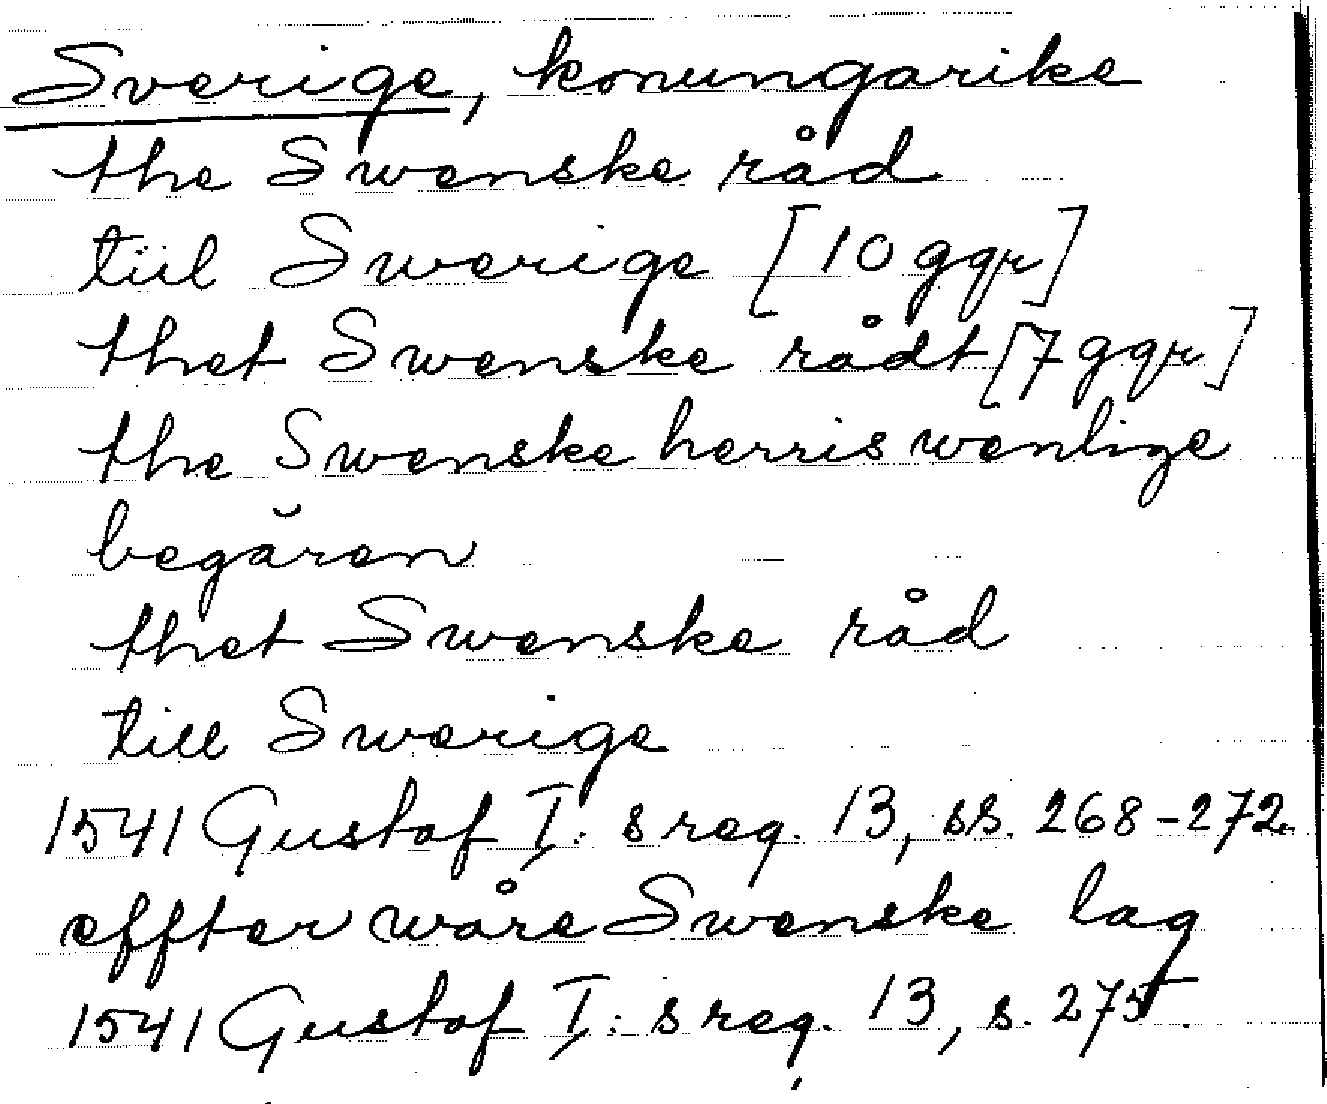 Sverige, konungarike
the Swenske råd
tiil Swerige [10 ggr]
thet Swenske rådt [7 ggr]
the Swenske herris wenlige
begären
thet Swenske råd
till Swerige
1541 Gustaf I:s reg. 13, ss. 268-272.
effter wåre Swenske lag
1541 Gustaf I:s reg. 13, s. 275.